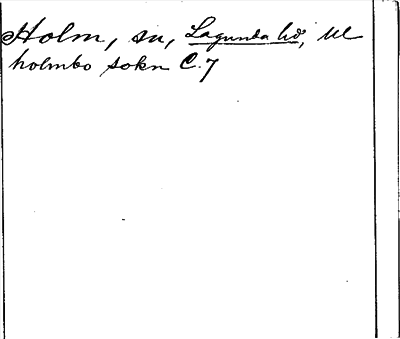 Holm, sn, Lagunda hd, Ul
holmbo sokn C.7